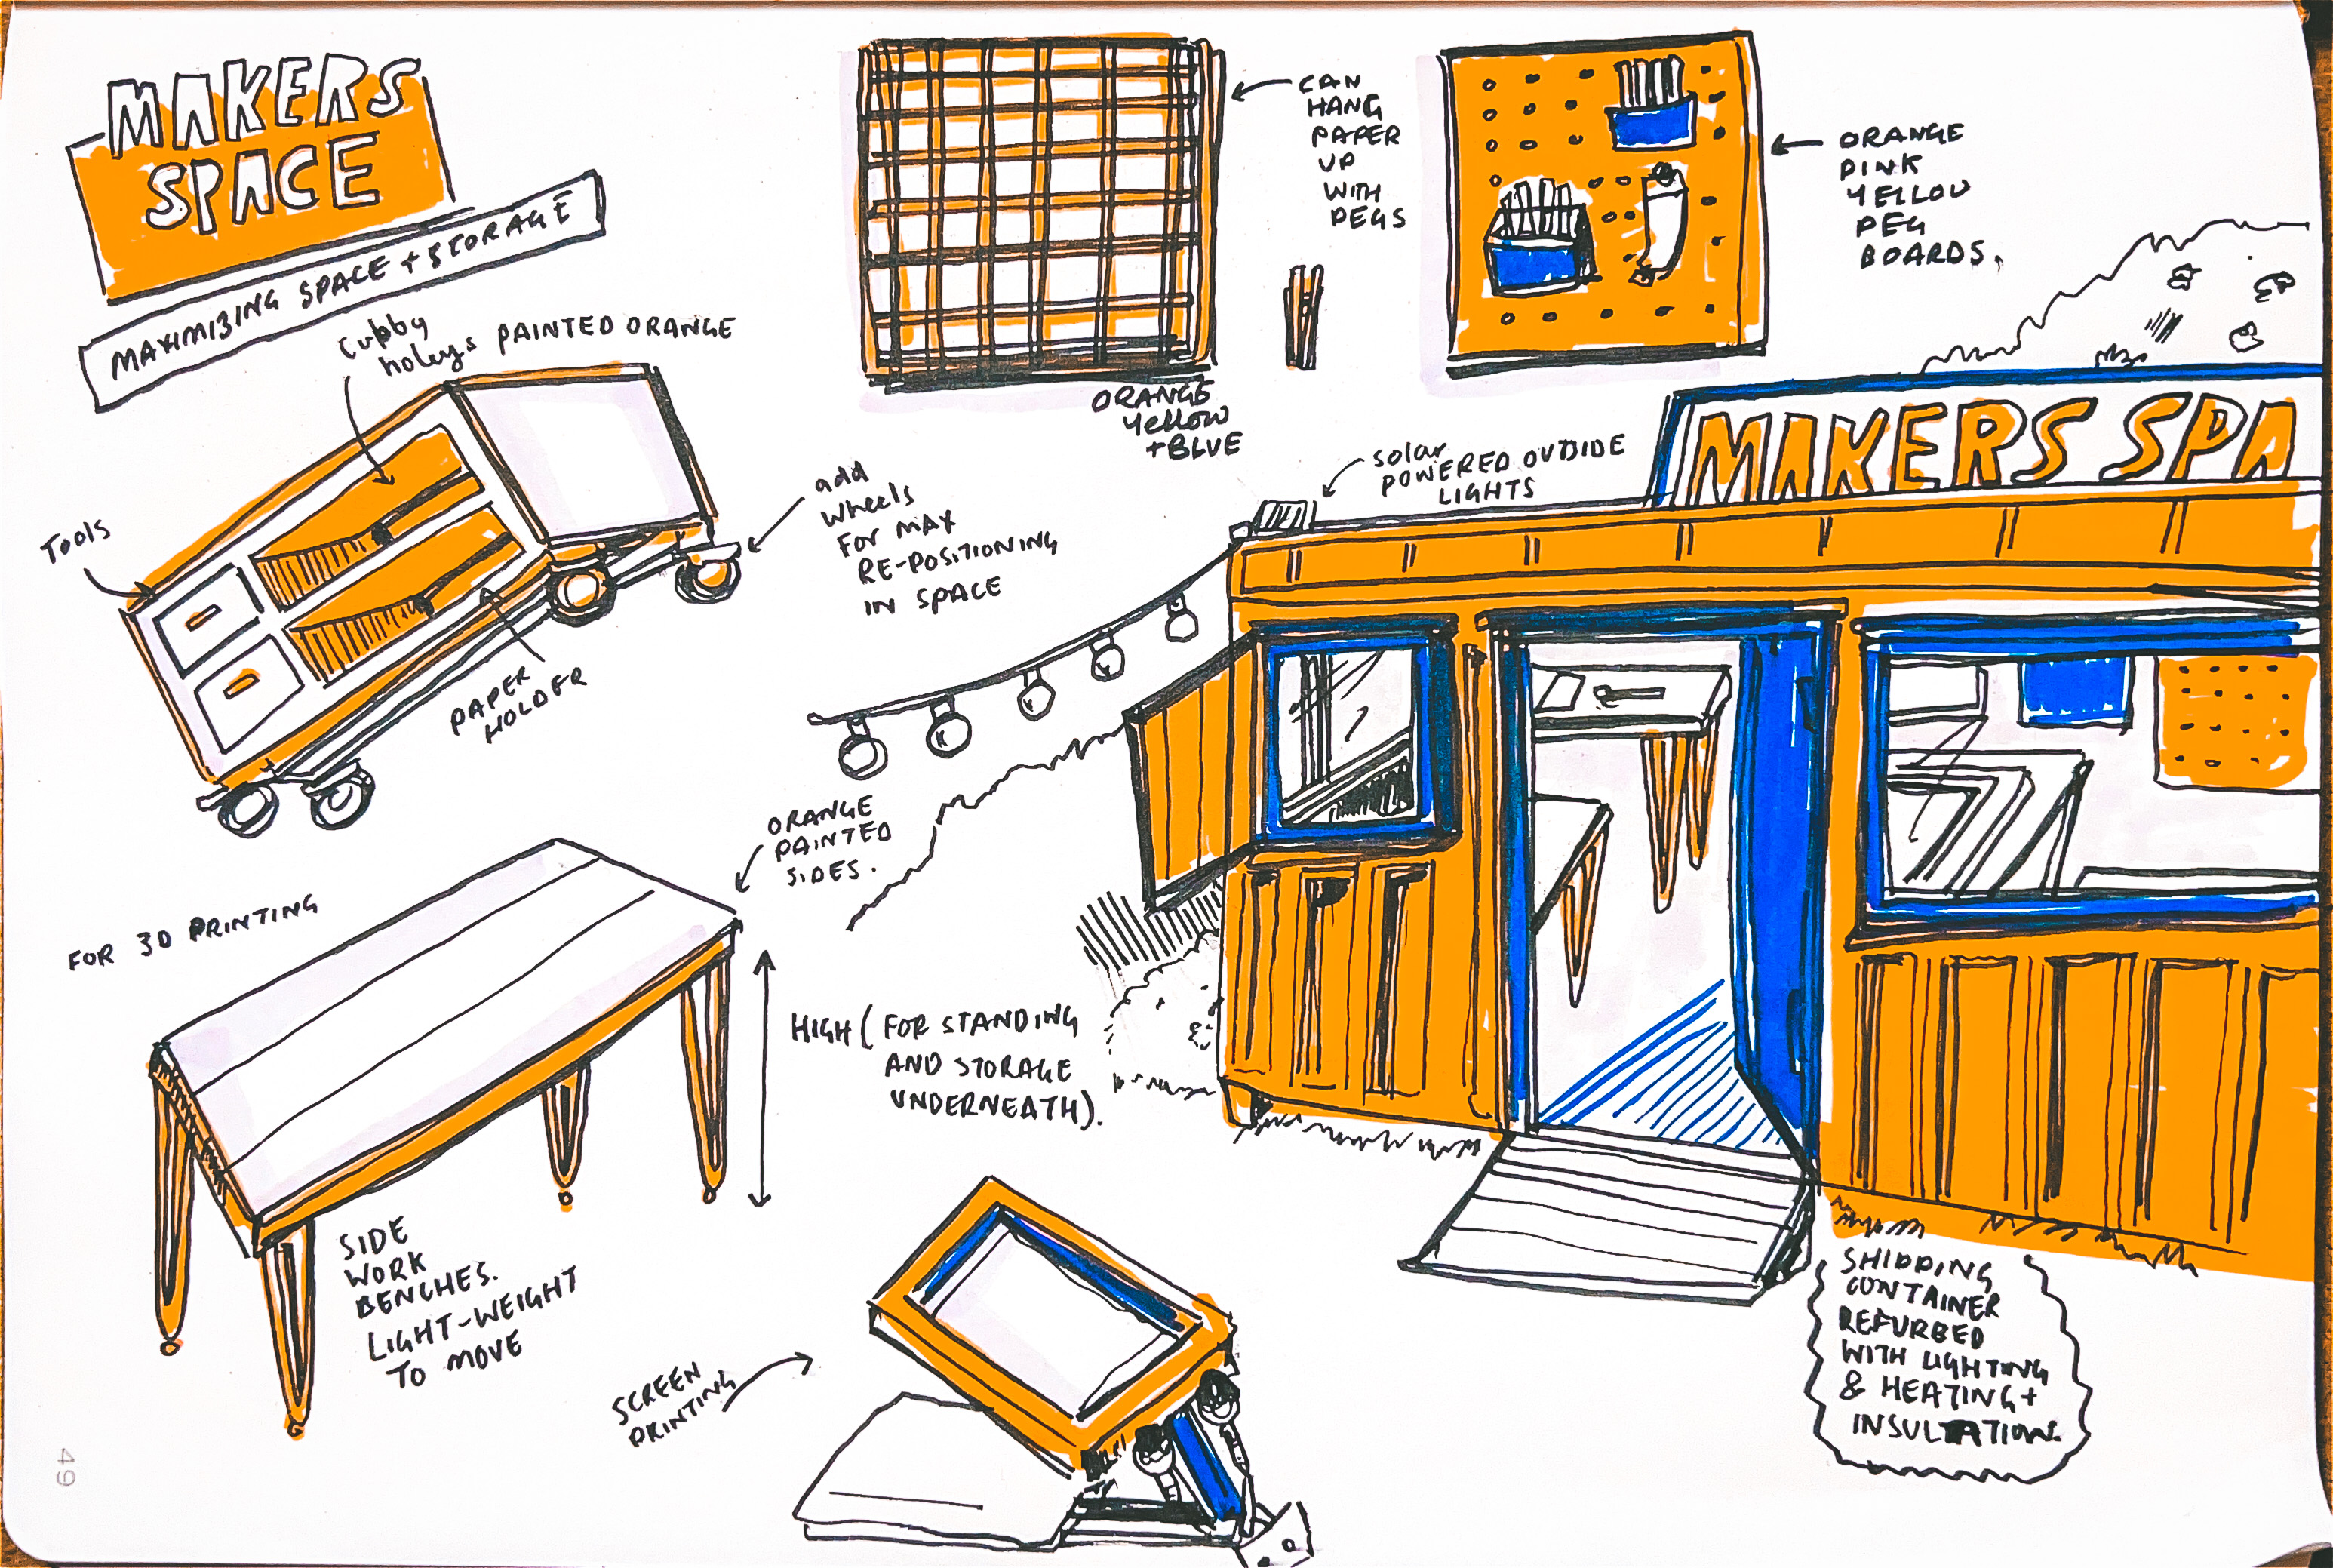 MAKERS
SPACE
MAXIMIZING SPACE + STORAGE
Cubby
holeys PAINTED ORANGE
Tools
PAPER
HOLDER
add
wheels
FOR MAX
RE-POSITIONING
IN SPACE
CAN
HANG
PAPER
UP
WITH
PEGS
ORANGE
Yellow
+ BLUE
ORANGE
PINK
YELLOW
PEG
BOARDS.
solar
POWERED OUTSIDE
LIGHTS
MAKERS SPA
ORANGE
PAINTED
SIDES.
FOR 3D PRINTING
HIGH (FOR STANDING
AND STORAGE
UNDERNEATH).
SIDE
WORK
BENCHES.
LIGHT-WEIGHT
TO MOVE
SCREEN
PRINTING
SHIPPING
CONTAINER
REFURBED
WITH LIGHTING
& HEATING +
INSULTATION.
49